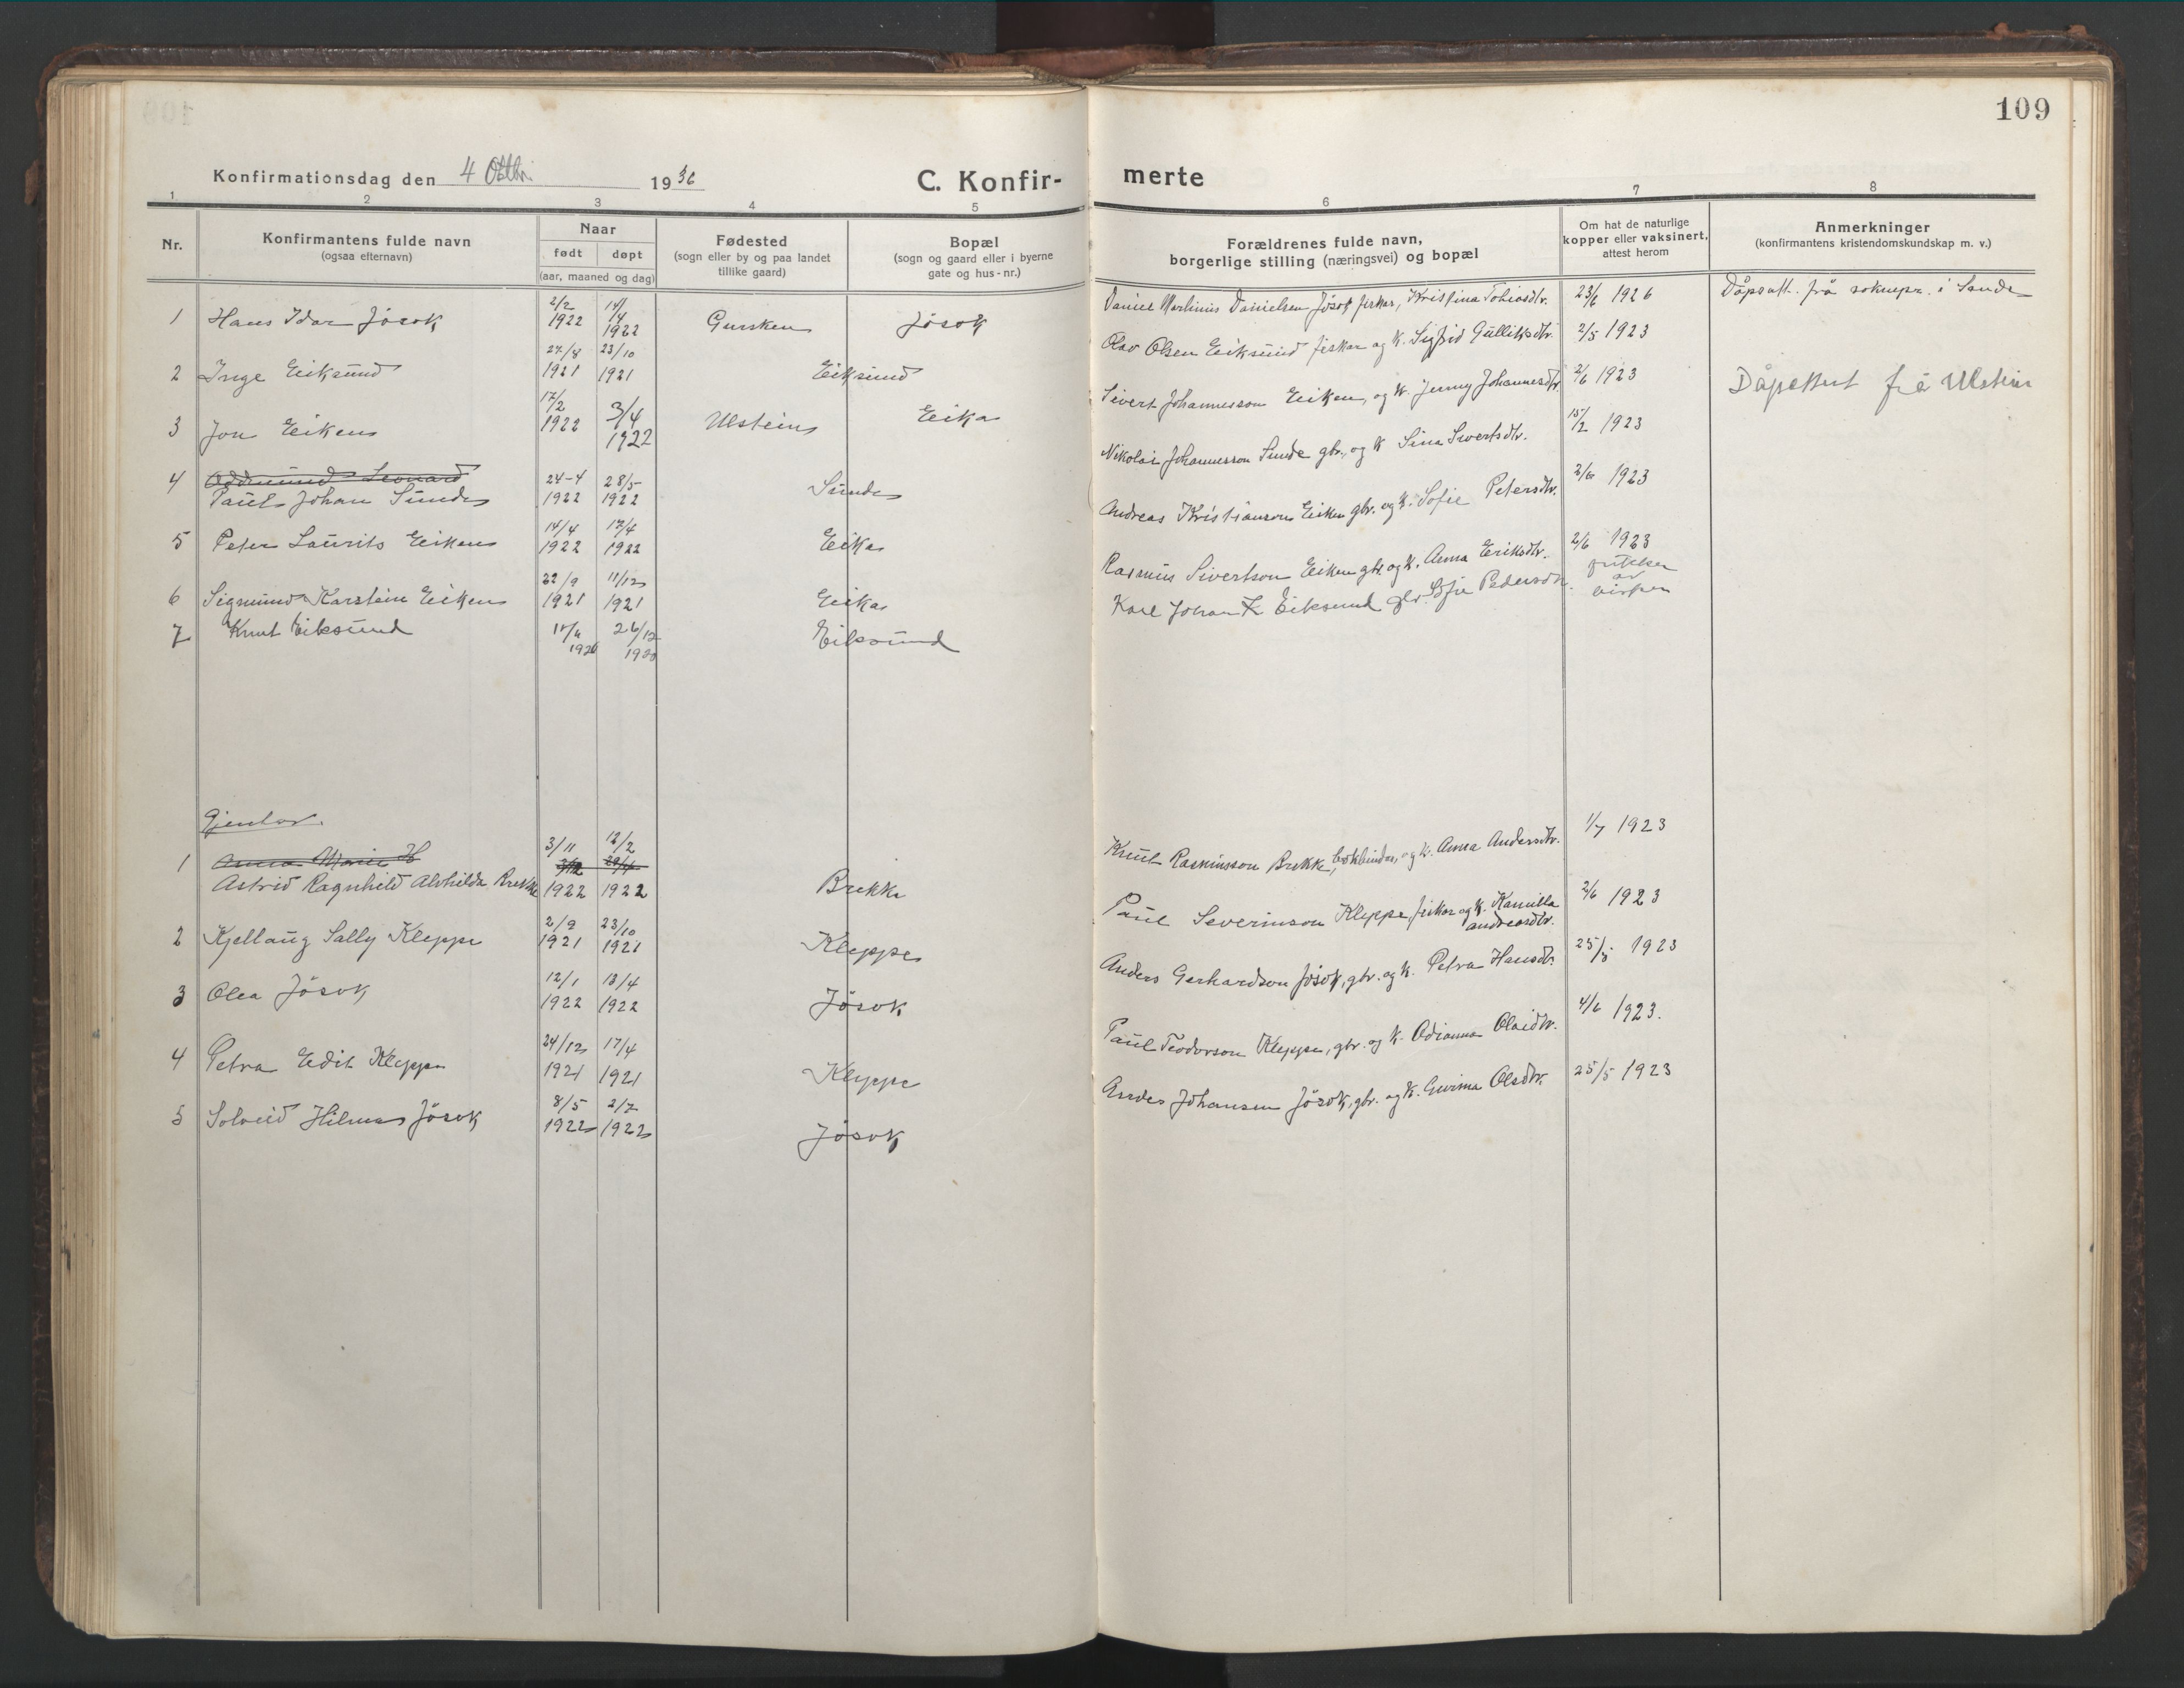 109
Konfirmationsdag den 4 Oktbr. 1936
C. Konfir-
merte
1 2 3 4 5 6 7 8
Nr.
Konfirmantens fulde navn
(ogsaa efternavn)
Naar
født døpt
(aar, maaned og dag)
Fødested
(sogn eller by og paa landet
tillike gaard)
Bopæl
(sogn og gaard eller i byerne
gate og hus-nr.)
Forældrenes fulde navn,
borgerlige stilling (næringsvei) og bopæl
Om hat de naturlige
kopper eller vaksinert,
attest herom
Anmerkninger
(konfirmantens kristendomskundskap m. v.)
1 Hans Idar Jösok 2/2 1922 14/4 1922 Gursken Jösok Daniel Martinus Danielsen Jösok fiskar, Kristina Tobiasdtr. 23/6 1926 Dåpsatt. frå soknepr. i Sande
2 Inge Eiksund 27/8 1921 23/10 1921 Eiksund Olav Olsen Eiksund fiskar og k. Sigfrid Gulliksdtr. 2/5 1923
3 Jon Eiken 17/2 1922 3/4 1922 Ulstein Eika Sivert Johannesson Eiken, og k. Jenny Johannesdtr. 2/6 1923 Dåpattest frå Ulstein
4 Oddmund Leonard
Paul Johan Sunde 24-4 1922 28/5 1922 Sunde Nikolai Johannesson Sunde gbr., og k Sina Sivertsdtr. 15/2 1923
5 Peter Laurits Eiken 14/4 1922 17/4 1922 Eika Andreas Kristianson Eiken gbr. og k. Sofie Petersdtr. 2/6 1923
6 Sigmund Karstein Eiken 22/9 1921 11/12 1921 Eika Rasmus Sivertson Eiken gbr. og k. Anna Eriksdtr. 2/6 1923
7 Knut Eiksund 26/12 Eiksund Karl Johan Eiksund gbr. Sofie Pedersdtr.
Gjentor.
1 Anna Marie H
Astrid Ragnhild Alvhilda Brekke 3/11 1922 12/2 1922 Brekke Knut Rasmusson Brekke, bokbindar, og k. Anna Andersdtr. 1/7 1923
2 Kjellaug Sally Kleppe 2/9 1921 23/10 1921 Kleppe Paul Severinson Kleppe fiskar og k. Kamilla
Andreasdtr. 2/6 1923
3 Olea Jösok 12/1 1922 13/4 1922 Jösok Anders Gerhardson Jösok, gbr. og k. Petra Hansdtr. 25/5 1923
4 Petra Edit Kleppe 24/12 1921 17/4 1921 Kleppe Paul Teodorson Kleppe, gbr. og k. Odianna Olaidtr. 4/6 1923.
5 Solveid Hilma Jösok 8/5 1922 2/7 1922 Jösok Anders Johansen Jösok, gbr. og k. Gurina Olsdtr. 25/5 1923